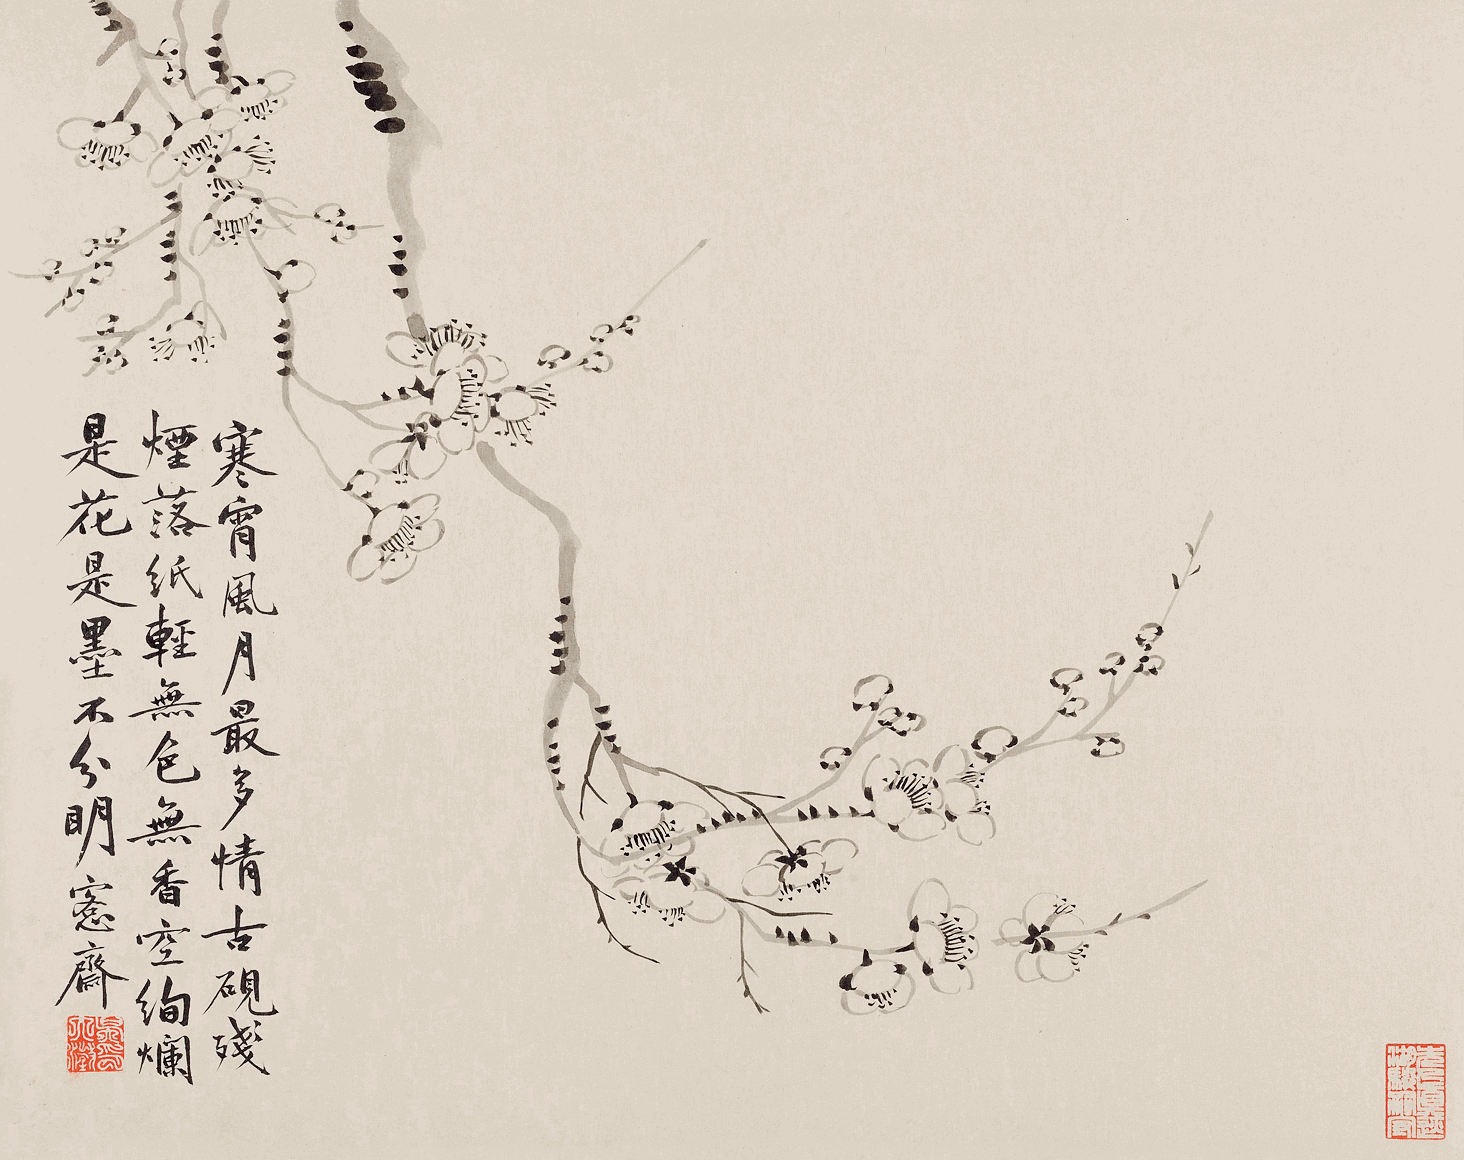 寒宵風月最多情古硯殘
煙落紙輕無色無香空絢爛
是花是墨不分明 愙齋